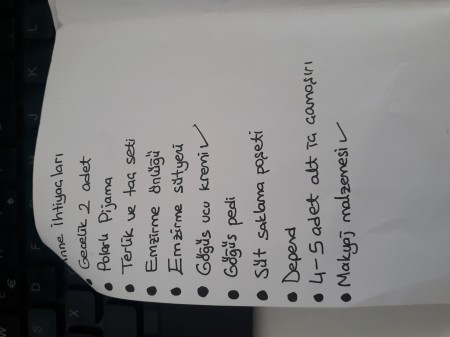 nne İhtiyaçları
• Gecelik 2 adet
• Polarlı Pijama
• Terlik ve taç seti
• Emzirme önlüğü
• Emzirme sütyeni
• Göğüs ucu kremi ✓
• Göğüs pedi
• Süt saklama poşeti
• Depend
• 4-5 adet alt iç çamaşırı
• Makyaj malzemesi ✓